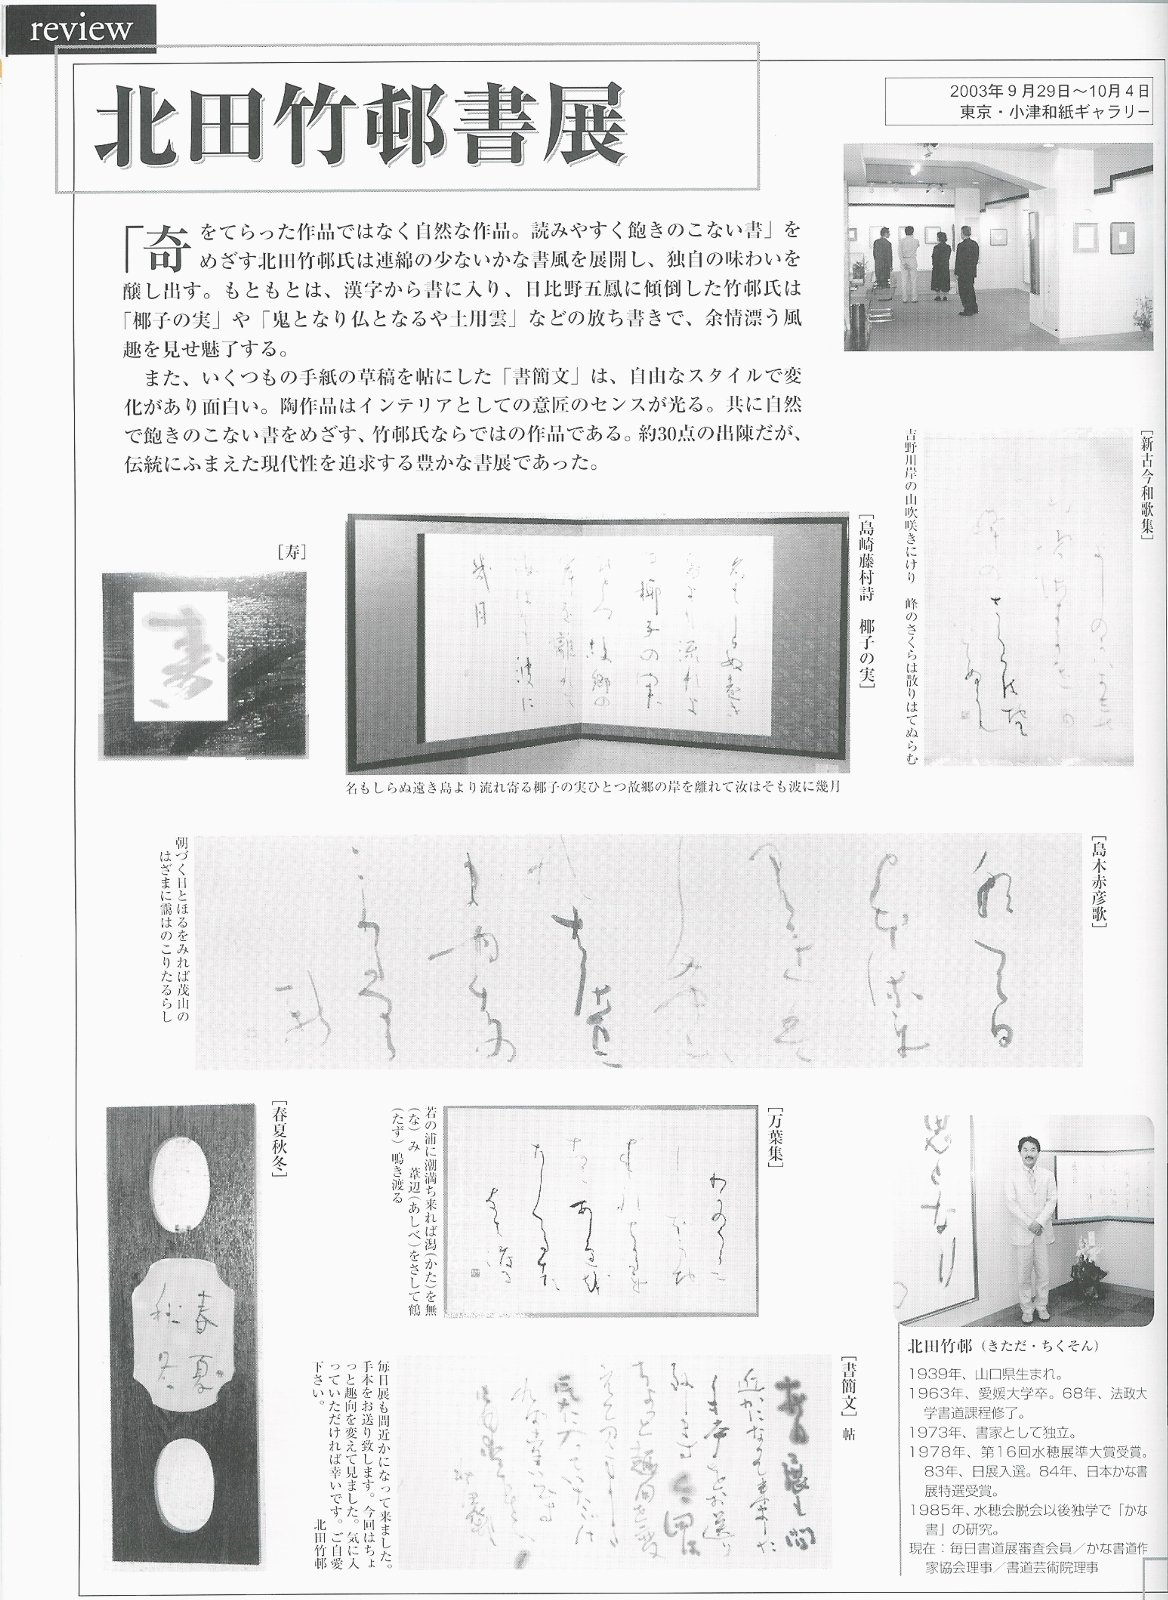 review
北田竹邨書展
2003年9月29日〜10月4日
東京・小津和紙ギャラリー
「奇をてらった作品ではなく自然な作品。読みやすく飽きのこない書」を
めざす北田竹邨氏は連綿の少ないかな書風を展開し、独自の味わいを
醸し出す。もともとは、漢字から書に入り、日比野五鳳に傾倒した竹邨氏は
「椰子の実」や「鬼となり仏となるや土用雲」などの放ち書きで、余情漂う風
趣を見せ魅了する。
また、いくつもの手紙の草稿を帖にした「書簡文」は、自由なスタイルで変
化があり面白い。陶作品はインテリアとしての意匠のセンスが光る。共に自然
で飽きのこない書をめざす、竹邨氏ならではの作品である。約30点の出陳だが、
伝統にふまえた現代性を追求する豊かな書展であった。
［新古今和歌集］
吉野川岸の山吹咲きにけり 峰のさくらは散りはてぬらむ
［島崎藤村詩 椰子の実］
名もしらぬ遠き島より流れ寄る椰子の実ひとつ故郷の岸を離れて汝はそも波に幾月
［寿］
寿
［島木赤彦歌］
朝づく日とほるをみれば茂山の
はざまに靄はのこりたるらし
［春夏秋冬］
春夏
秋冬
［万葉集］
若の浦に潮満ち来れば潟（かた）を無
（な）み 葦辺（あしべ）をさして鶴
（たず）鳴き渡る
［書簡文］帖
毎日展も間近かになって来ました。
手本をお送り致します。今回はちょ
っと趣向を変えて見ました。気に入
っていただければ幸いです。ご自愛
下さい。
北田竹邨
北田竹邨（きただ・ちくそん）
1939年、山口県生まれ。
1963年、愛媛大学卒。68年、法政大
学書道課程修了。
1973年、書家として独立。
1978年、第16回水穂展準大賞受賞。
83年、日展入選。84年、日本かな書
展特選受賞。
1985年、水穂会脱会以後独学で「かな
書」の研究。
現在：毎日書道展審査会員／かな書道作
家協会理事／書道芸術院理事